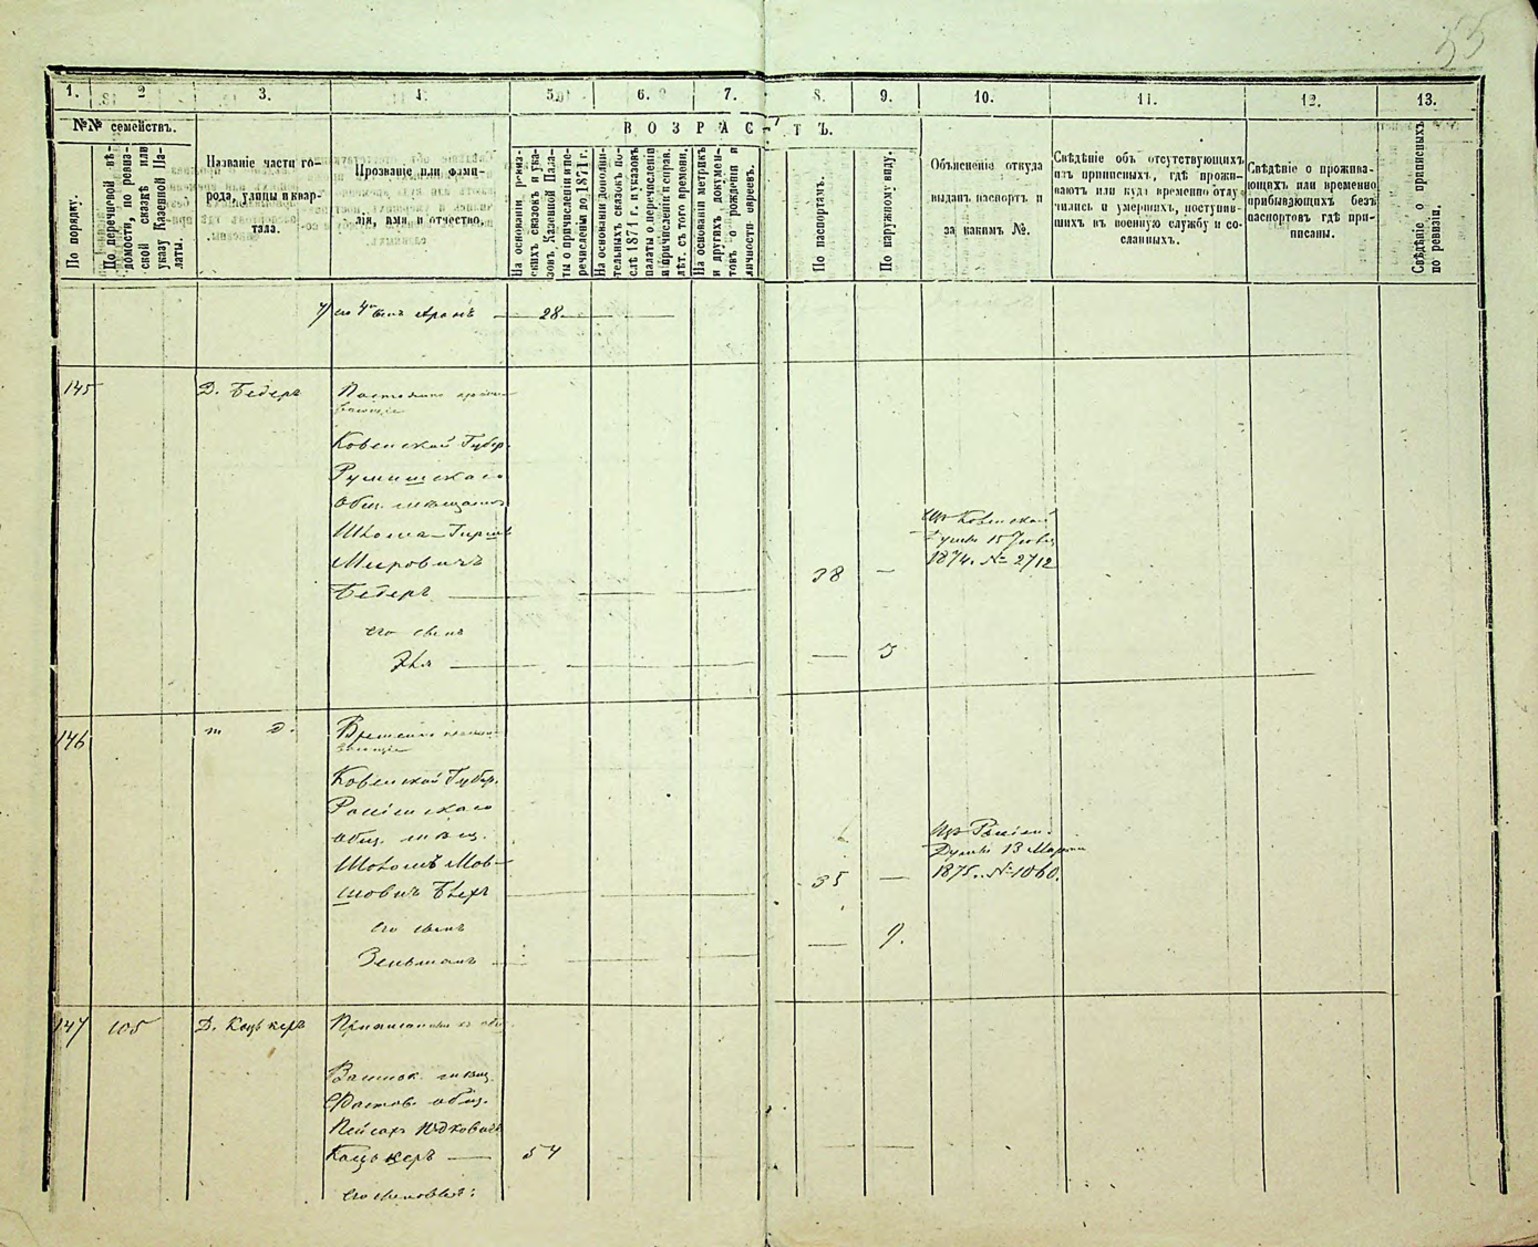 55
1. 2 3. 4. 5. 6. 7. 8. 9. 10. 11. 12. 13.
№№ семействъ.
ВОЗРАСТЪ.
По порядку.
По перечневой вѣ-
домости, по ревиз-
ской сказкѣ или
указу Казенной Па-
латы.
Названіе части го-
рода, улицы и квар-
тала.
Прозваніе или фами-
лія, имя и отчество.
На основаніи ревиз-
скихъ сказокъ и ука-
зовъ Казенной Пала-
ты о причисленіи и пе-
речисленіи до 1871 г.
На основаніи дополни-
тельныхъ сказокъ по-
слѣ 1871 г. и указовъ
палаты о перечисленіи
и причисленіи и справ.
лѣт. съ того времени.
На основаніи метрикъ
и другихъ докумен-
товъ о рожденіи и
личности евреевъ.
По паспортамъ.
По наружному виду.
Объясненіе откуда
выданъ паспортъ и
за какимъ №.
Свѣдѣніе объ отсутствующихъ
изъ приписныхъ, гдѣ прожи-
ваютъ или куда временно отлу-
чились и умершихъ, поступив-
шихъ въ военную службу и со-
сланныхъ.
Свѣдѣніе о прожива-
ющихъ или временно
прибывающихъ безъ
паспортовъ гдѣ при-
писаны.
Свѣдѣніе о приписныхъ
по ревизіи.
7) его 4й сынъ Аронъ — 28
145 Д. Бедеръ
Ковенской Губер.
Румишскаго
Общ. мѣщанинъ
Шлома-Гиршъ
Меровичъ
Бедеръ 38 —
Изъ Ковенской
Думы 15
1874. № 2712
его сынъ
— 5
146 т д.
Ковенской Губер.
общ. мѣщ.
Шоломъ Мов-
шовичъ Берх 35 —
Думы 13 Марта
1875. № 1060.
его сынъ
Зельманъ — 9.
147 105 Д. Коцькеръ
Васильк. мѣщ.
Фастов. общ.
Пейсахъ Юдковичъ
Коцькеръ — 54
его сыновья: